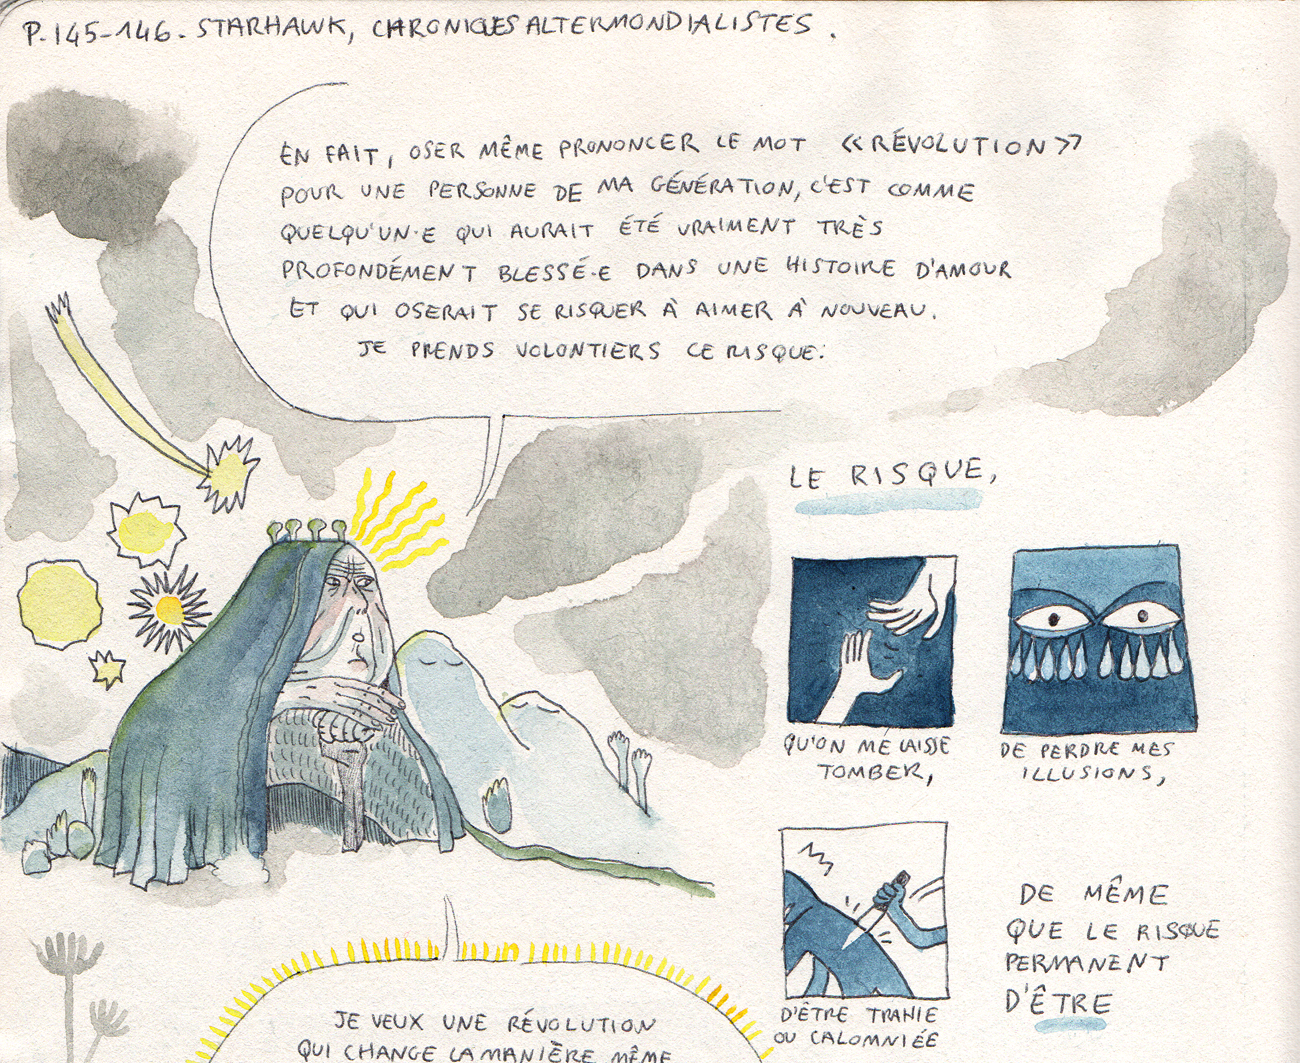 P. 145-146. STARHAWK, CHRONIQUES ALTERMONDIALISTES.
EN FAIT, OSER MÊME PRONONCER LE MOT «RÉVOLUTION»
POUR UNE PERSONNE DE MA GÉNÉRATION, C'EST COMME
QUELQU'UN·E QUI AURAIT ÉTÉ VRAIMENT TRÈS
PROFONDÉMENT BLESSÉ·E DANS UNE HISTOIRE D'AMOUR
ET QUI OSERAIT SE RISQUER À AIMER À NOUVEAU.
JE PRENDS VOLONTIERS CE RISQUE:
LE RISQUE,
QU'ON ME LAISSE
TOMBER,
DE PERDRE MES
ILLUSIONS,
D'ÊTRE TRAHIE
OU CALOMNIÉE
DE MÊME
QUE LE RISQUE
PERMANENT
D'ÊTRE
JE VEUX UNE RÉVOLUTION
QUI CHANGE LA MANIÈRE MÊME